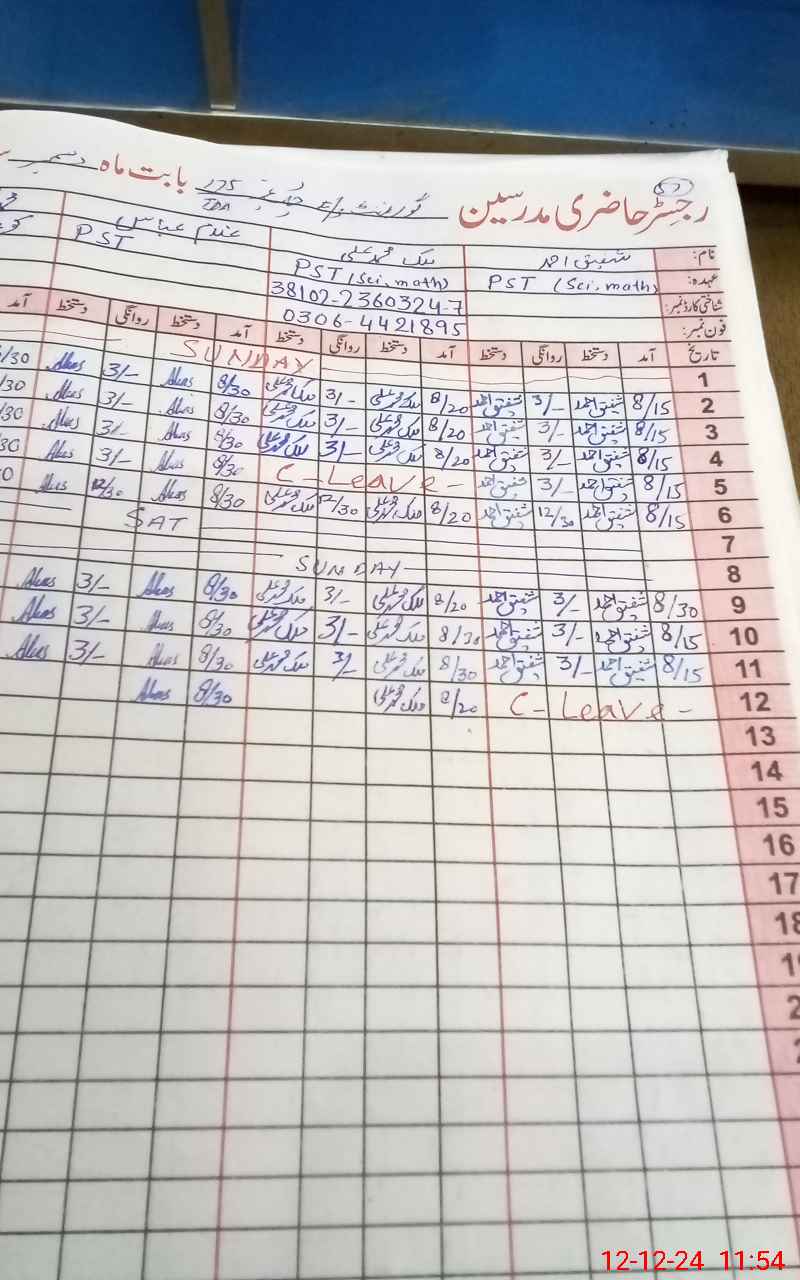 رجسٹر حاضری مدرسین گورنمنٹ 175 TDA بابت ماہ دسمبر
نام: شفیق احمد ملک محمد علی غلام عباس
عہدہ: PST (Sci, math) PST (Sci, math) PST
شناختی کارڈ نمبر: 38102-2360324-7
فون نمبر: 0306-4421895
تاریخ آمد دستخط روانگی دستخط آمد دستخط روانگی دستخط آمد دستخط روانگی دستخط آمد
1 SUNDAY
2 8/15 شفیق احمد 3/- شفیق احمد 8/20 ملک محمد علی 3/- ملک محمد علی 8/30 Abas 3/- Abas /30
3 8/15 شفیق احمد 3/- شفیق احمد 8/20 ملک محمد علی 3/- ملک محمد علی 8/30 Abas 3/- Abas /30
4 8/15 شفیق احمد 3/- شفیق احمد 8/20 ملک محمد علی 3/- ملک محمد علی 8/30 Abas 3/- Abas /30
5 8/15 شفیق احمد 3/- شفیق احمد C-Leave- 8/30 Abas 3/- Abas 30
6 8/15 شفیق احمد 12/30 شفیق احمد 8/20 ملک محمد علی 12/30 ملک محمد علی 8/30 Abas 12/30 Abas
7 SAT
8 SUNDAY
9 8/30 شفیق احمد 3/- شفیق احمد 8/20 ملک محمد علی 3/- ملک محمد علی 8/30 Abas 3/- Abas
10 8/15 شفیق احمد 3/- شفیق احمد 8/30 ملک محمد علی 3/- ملک محمد علی 8/30 Abas 3/- Abas
11 8/15 شفیق احمد 3/- شفیق احمد 8/30 ملک محمد علی 3/- ملک محمد علی 8/30 Abas 3/- Abas
12 C-Leave- 8/20 ملک محمد علی 8/30 Abas
13
14
15
16
17
18
12-12-24 11:54